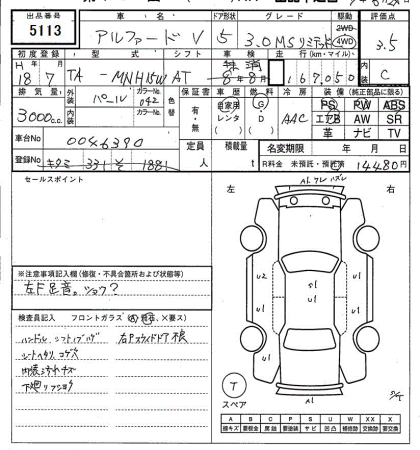 出品番号 車名 ドア形状 グレード 駆動 評価点
5113 アルファードV 5 3.0MSリミテッド 2WD 4WD 3.5
初度登録 型式 シフト 車検 走行(km・マイル) 内装
H 18年 7月 TA-MNH15W AT 8年8月 抹消 167,050 C
排気量 外装 パール カラーNo. 042 色替 保証書 車歴 燃料 冷房 装備(純正部品に限る)
3000c.c. 内装 カラーNo. 有・無 自家用 レンタ G D AAC PS PW ABS
エアB AW SR
革 ナビ TV
車台No 0046390 定員 人 積載量 t 名変期限 年 月 日
登録No 331 1881 R料金 未預託・預託済 14480円
セールスポイント
左 右
A1
U2 U1 S1 U1
U1 U1
A1
※注意事項記入欄(修復・不具合箇所および状態等)
左F足音。ショウ?
検査員記入 フロントガラス
ハンドル シフトノブハゲ 右Pスライドドア
シートヘタリ コゲ穴
内張シミキズ
下廻リサショウ
T
スペア
A B C P S U W X XX
線キズ 要板金 腐蝕 要塗装 サビ 凹凸 補修跡 要交換 交換跡